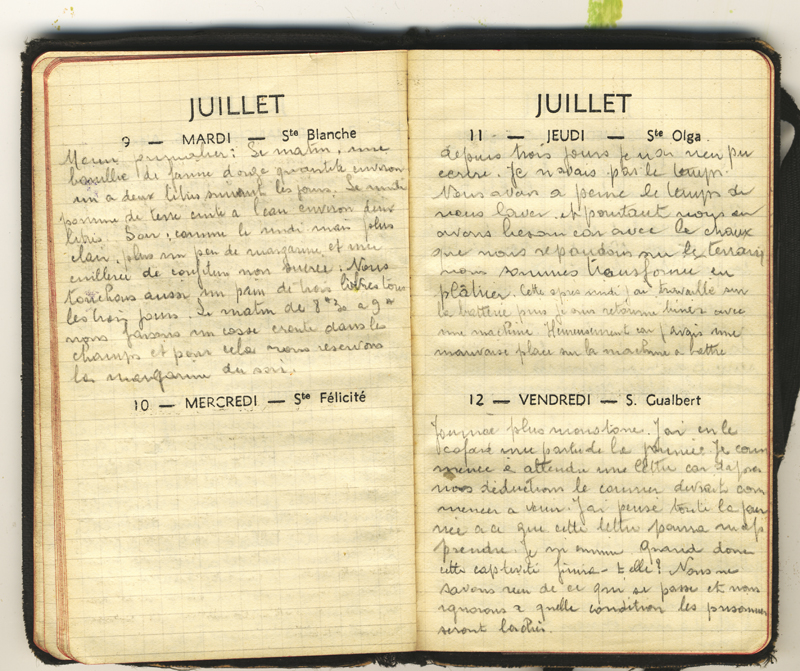 JUILLET
9 — MARDI — Ste Blanche
Menu journalier : Le matin, une
bouillie de farine d'orge quantité environ
un a deux litres suivant les jours. Le midi
pomme de terre cuite a l'eau environ deux
litres. Soir, comme le midi mais plus
clair, plus un peu de margarine et une
cuillerée de confiture non sucrée. Nous
touchons aussi un pain de trois livres tous
les trois jours. Le matin de 8 h 30 a 9 h
nous faisons un casse croute dans les
champs et pour cela nous reservons
la margarine du soir.
10 — MERCREDI — Ste Félicité
JUILLET
11 — JEUDI — Ste Olga
depuis trois jours je n'ai rien pu
ecrire. Je n'avais pas le temps.
Nous avons a peine le temps de
nous laver et pourtant nous en
avons besoin car avec la chaux
que nous repandons sur le terrain
nous sommes transformé en
plâtrier. Cette après midi j'ai travaillé sur
la batterie puis je suis retourné biner avec
une machine. Heureusement car j'avais une
mauvaise place sur la machine a battre
12 — VENDREDI — S. Gualbert
Journée plus monotone. J'ai eu le
cafard une partie de la journée. Je com
mence à attendre une lettre car d'apres
nos déductions le courrier devrait com
mencer a venir. J'ai pensé toute la jour
née a ce que cette lettre pourra m'ap
prendre. Je m'ennuie. Quand donc
cette captivité finira-t-elle ? Nous ne
savons rien de ce qui se passe et nous
ignorons a quelle condition les prisonniers
seront